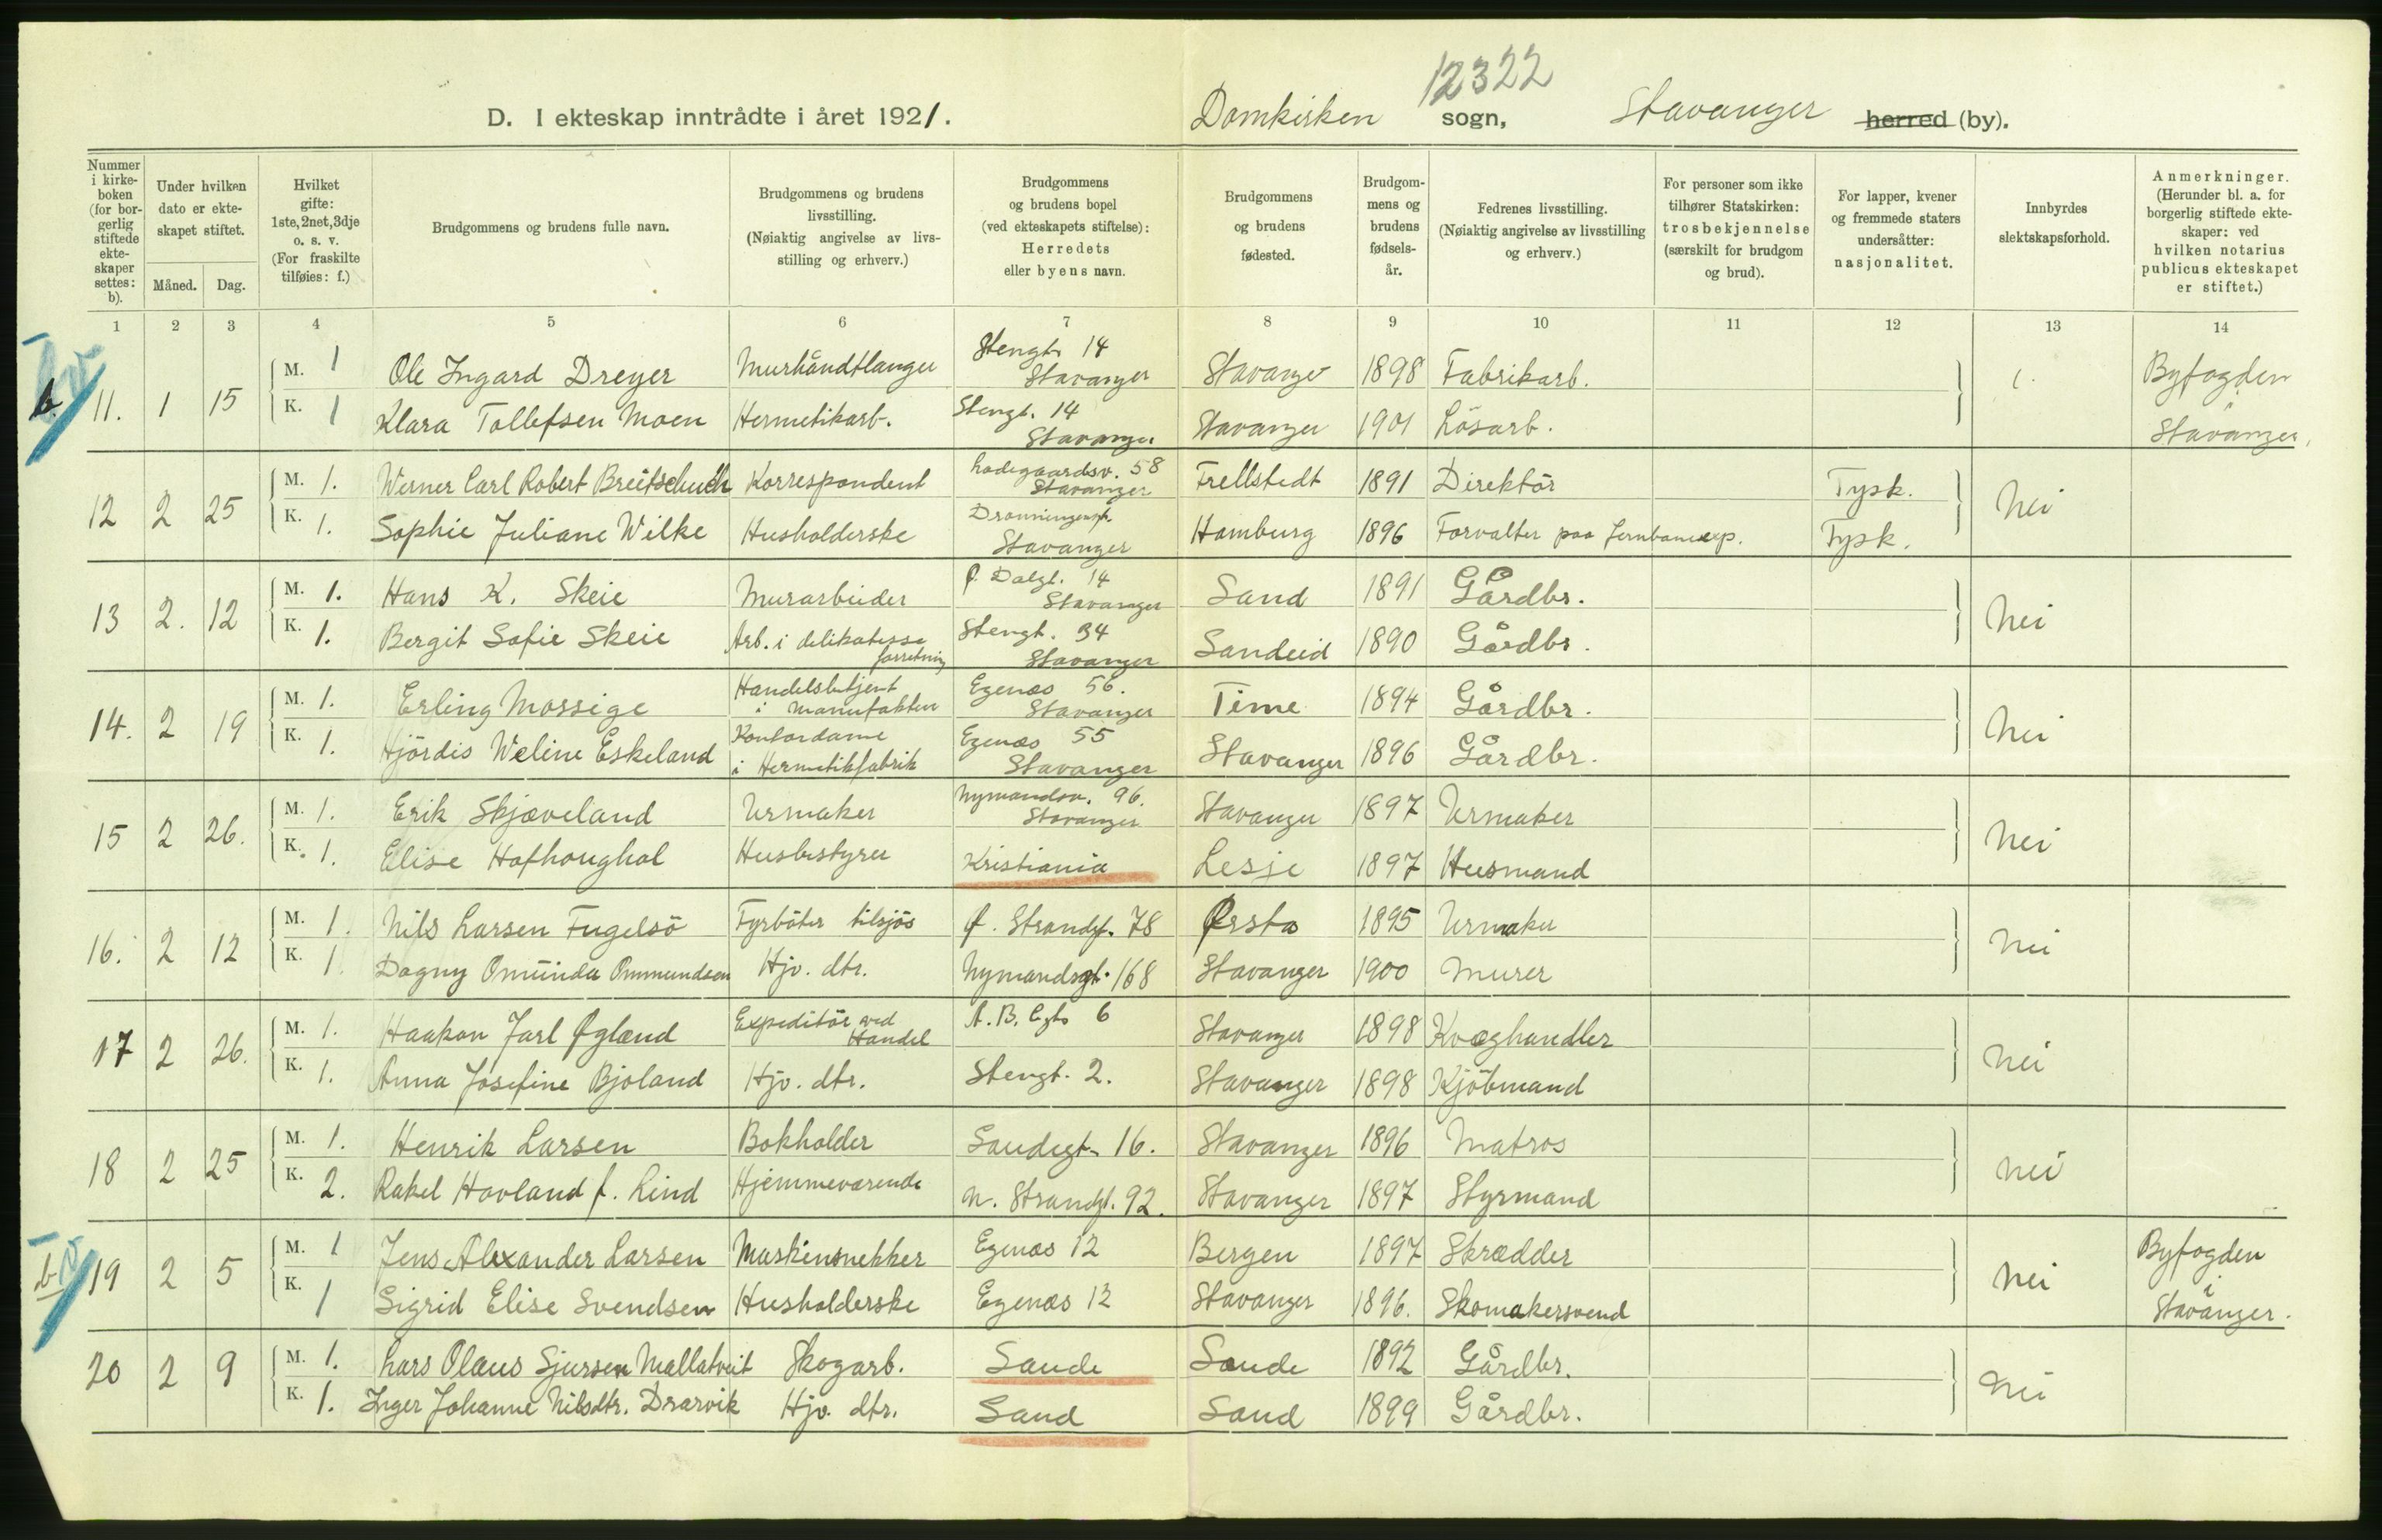 12322
D. I ekteskap inntrådte i året 1921. Domkirken sogn, Stavanger herred (by).
Nummer i kirke-boken (for bor-gerlig stiftede ekte-skaper settes: b).
Under hvilken dato er ekte-skapet stiftet.
Måned. Dag.
Hvilket gifte: 1ste, 2net, 3dje o. s. v. (For fraskilte tilføies: f.)
Brudgommens og brudens fulle navn.
Brudgommens og brudens livsstilling. (Nøiaktig angivelse av livs-stilling og erhverv.)
Brudgommens og brudens bopel (ved ekteskapets stiftelse): Herredets eller byens navn.
Brudgommens og brudens fødested.
Brudgom-mens og brudens fødsels-år.
Fedrenes livsstilling. (Nøiaktig angivelse av livsstilling og erhverv.)
For personer som ikke tilhører Statskirken: trosbekjennelse (særskilt for brudgom og brud).
For lapper, kvener og fremmede staters undersåtter: nasjonalitet.
Innbyrdes slektskapsforhold.
Anmerkninger. (Herunder bl. a. for borgerlig stiftede ekte-skaper: ved hvilken notarius publicus ekteskapet er stiftet.)
1 2 3 4 5 6 7 8 9 10 11 12 13 14
b. 11. 1 15 M. 1 Ole Ingard Dreyer Murhåndtlanger Stengt 14 Stavanger Stavanger 1898 Fabrikarb. Byfogden i
K. 1 Klara Tollefsen Moen Hermetikarb. Stengt. 14 Stavanger Stavanger 1901 Lösarb. Stavanger.
12 2 25 M. 1. Werner Carl Robert Breitschuch Korrespondent Ladegaardsv. 58 Stavanger Frellstedt 1891 Direktör Tysk. Nei
K. 1. Sophie Juliane Wilke Husholderske Dronningensgt. Stavanger Hamburg 1896 Forvalter paa Jernbaneexp. Tysk.
13 2. 12 M. 1. Hans K. Skeie Murarbeider Ø. Dalgt. 14 Stavanger Sand 1891 Gårdbr. Nei
K. 1. Bergit Sofie Skeie Arb. i delikatesse forretning Stengt. 34 Stavanger Sandeid 1890 Gårdbr.
14. 2 19 M. 1. Erling Mossige Handelsbetjent i Manufaktur Egenæs 56. Stavanger Time 1894 Gårdbr. Nei
K. 1. Hjördis Weline Eskeland Kontordame i Hermetikfabrik Egenæs 55 Stavanger Stavanger 1896 Gårdbr.
15 2 26. M. 1. Erik Skjæveland Urmaker Nymandsv. 96. Stavanger Stavanger 1897 Urmaker Nei
K. 1. Elise Hofhoughol Husbestyrer Kristiania Lesje 1897 Husmand
16. 2 12 M. 1. Nils Larsen Fugelsö Fyrböter tilsjös Ø. Strandgt. 78 Ørsta 1895 Urmaker Nei
K. 1. Dagny Omünda Ommundsen Hjv. dtr. Nymandsgt. 168 Stavanger 1900 Murer
17 2 26. M. 1. Haakon Jarl Øgland Expeditör ved Handel A. B. Cgt 6 Stavanger 1898 Kvæghandler Nei
K. 1. Anna Josefine Bjoland Hjv. dtr. Stengt. 2. Stavanger 1898 Kjöbmand
18 2 25 M. 1. Henrik Larsen Bokholder Saudegt. 16. Stavanger 1896 Matros Nei
K. 2. Rakel Hovland f. Lind Hjemmeværende N. Strandgt. 92. Stavanger 1897 Styrmand
b 19 2 5 M. 1 Jens Alexander Larsen Maskinsnekker Egenæs 12 Bergen 1897 Skrædder Nei Byfogden i
K. 1 Sigrid Elise Svendsen Husholderske Egenæs 12 Stavanger 1896. Skomakersvend Stavanger.
20 2 9 M. 1. Lars Olaus Sjursen Mallatveit Skogarb. Saude Saude 1892 Gårdbr. Nei
K. 1. Inger Johanne Nilsdtr. Drarvik Hjv. dtr. Sand Sand 1899 Gårdbr.